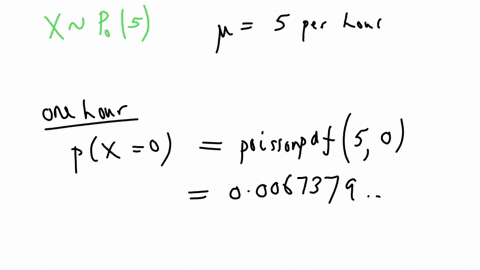 X ~ Po(5) μ = 5 per hour
one hour
p(X = 0) = poissonpdf(5, 0)
= 0.0067379..